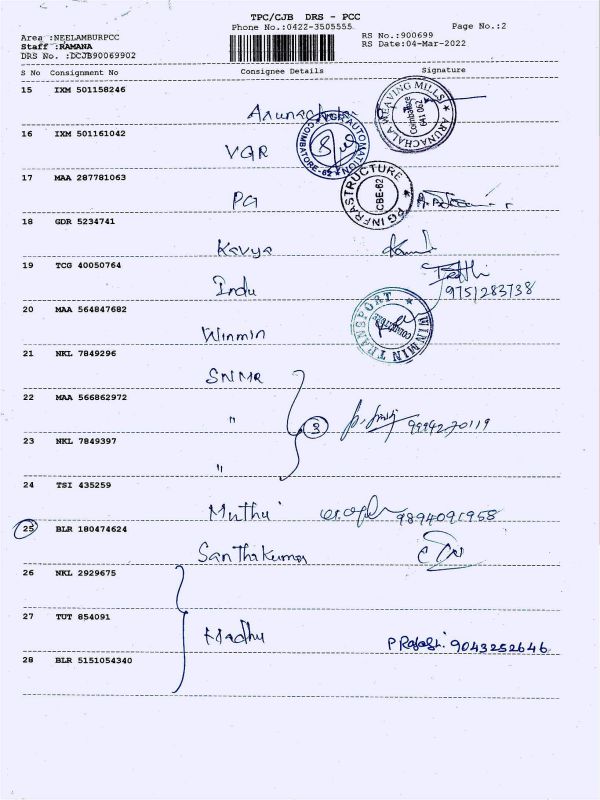 TPC/CJB DRS - PCC
Phone No.:0422-3505555
Page No.:2
Area :NEELAMBURPCC
RS No.:900699
Staff :RAMANA
RS Date:04-Mar-2022
DRS No. :DCJB90069902
S No Consignment No Consignee Details Signature
15 IXM 501158246
ARUNACHALA WEAVING MILLS
Coimbatore
641 062
16 IXM 501161042
VGR
AUTOMATION
COIMBATORE-62
17 MAA 287781063
PG
PG INFRASTRUCTURE
CBE-62
18 GDR 5234741
Kavya
19 TCG 40050764
Indu
9751283738
20 MAA 564847682
Winmin
WINMIN TRANSPORT
21 NKL 7849296
SNMR
22 MAA 566862972
"
3
9994270119
23 NKL 7849397
"
24 TSI 435259
Muthu
9894091958
25 BLR 180474624
Santhikumar
26 NKL 2929675
27 TUT 854091
Madhu
9043252646
28 BLR 5151054340